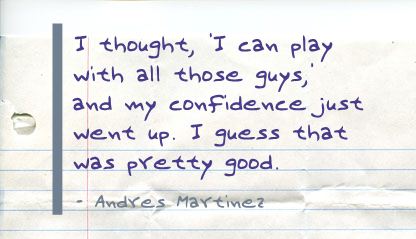 I thought, 'I can play
with all those guys,'
and my confidence just
went up. I guess that
was pretty good.
- Andres Martinez